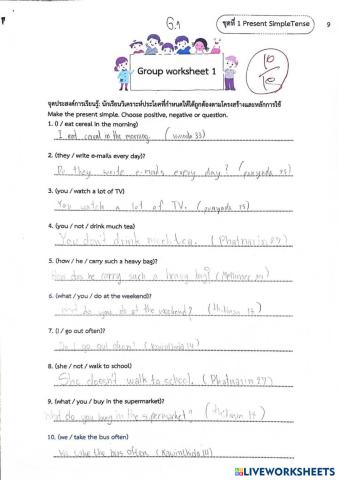 6.1
ชุดที่ 1 Present SimpleTense
9
Group worksheet 1
10
10
จุดประสงค์การเรียนรู้: นักเรียนวิเคราะห์ประโยคที่กำหนดให้ได้ถูกต้องตามโครงสร้างและหลักการใช้
Make the present simple. Choose positive, negative or question.
1. (I / eat cereal in the morning)
I eat cereal in the morning. 33)
2. (they / write e-mails every day)?
Do they write e-mails every day?
3. (you / watch a lot of TV)
You watch a lot of TV.
4. (you / not / drink much tea)
You don't drink much tea. (Phatnarin 27)
5. (how / he / carry such a heavy bag)?
How does he carry such a heavy bag?
6. (what / you / do at the weekend)?
What do you do at the weekend?
7. (I / go out often)?
Do I go out often?
8. (she / not / walk to school)
She doesn't walk to school. (Phatnarin 27)
9. (what / you / buy in the supermarket)?
What do you buy in the supermarket?
10. (we / take the bus often)
We take the bus often.
LIVEWORKSHEETS